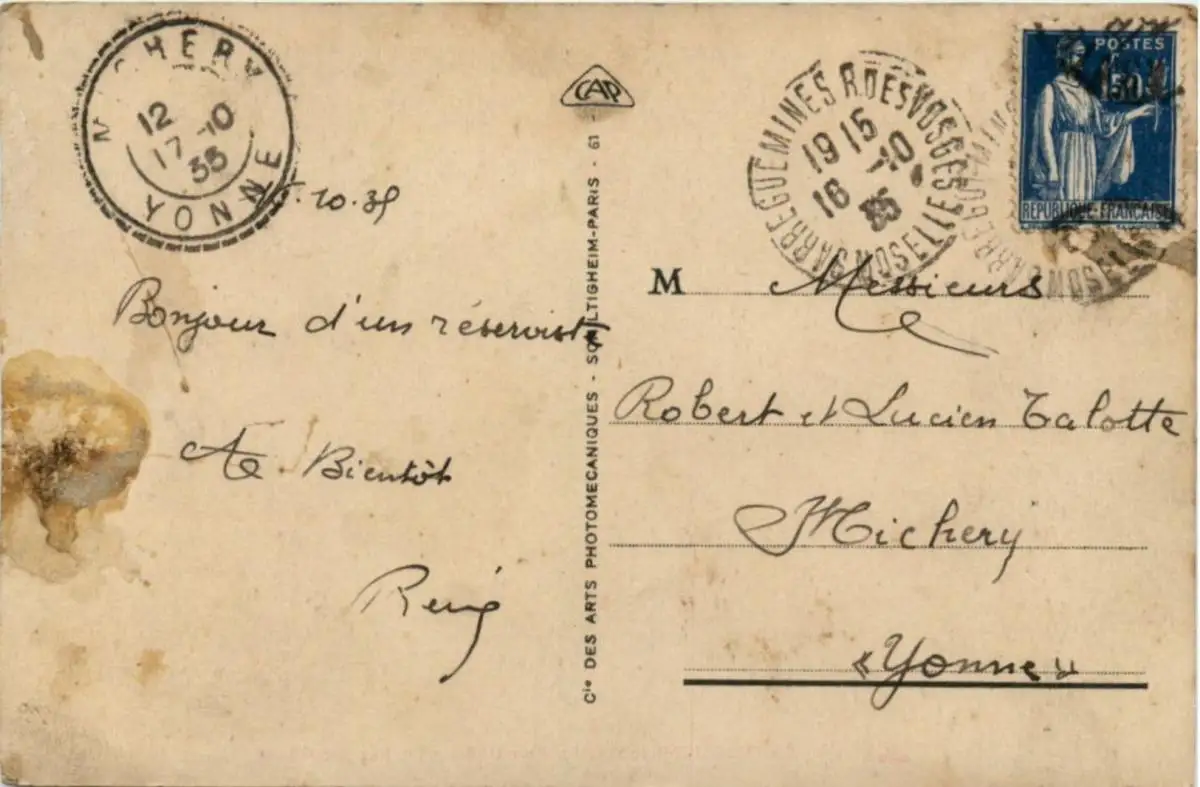 MICHERY
12
17-10
35
YONNE
10.35
Bonjour d'un réserviste
A Bientôt
René
CAP
Cie DES ARTS PHOTOMECANIQUES - SCHILTIGHEIM-PARIS - 61
SARREGUEMINES R.DES VOSGES
1915
16 -10
35
MOSELLE
POSTES
1F50
REPUBLIQUE-FRANÇAISE
SARREGUEMINES
MOSELLE
M Messieurs
Robert et Lucien Talotte
Michery
«Yonne»